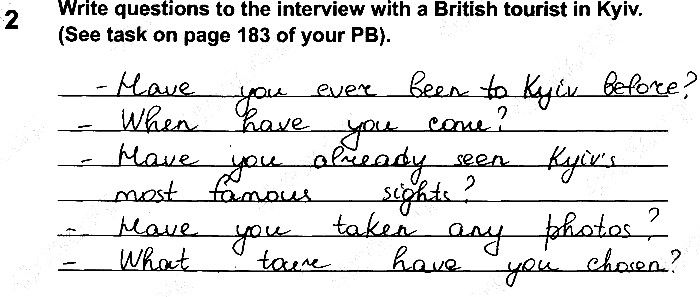 2 Write questions to the interview with a British tourist in Kyiv.
(See task on page 183 of your PB).
- Have you ever been to Kyiv before?
- When have you come?
- Have you already seen Kyiv's
most famous sights?
- Have you taken any photos?
- What toure have you chosen?